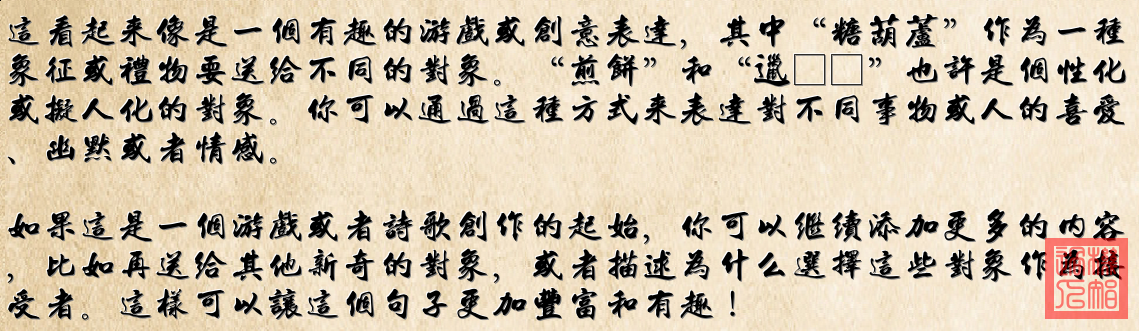 這看起来像是一個有趣的游戲或創意表達，其中“糖葫蘆”作為一種
象征或禮物要送給不同的對象。“煎餅”和“邋□□”也許是個性化
或擬人化的對象。你可以通過這種方式来表達對不同事物或人的喜愛
、幽默或者情感。
如果這是一個游戲或者詩歌創作的起始，你可以繼續添加更多的内容
，比如再送給其他新奇的對象，或者描述為什么選擇這些對象作為接
受者。這樣可以讓這個句子更加豐富和有趣！